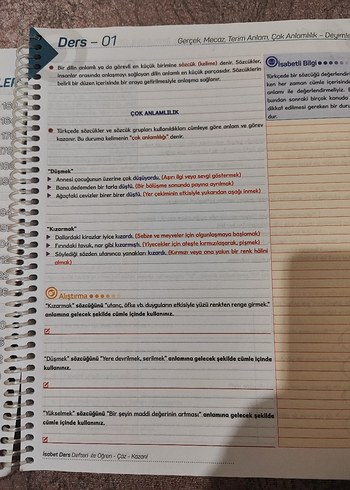 Ders – 01
Gerçek, Mecaz, Terim Anlam, Çok Anlamlılık – Deyimle
Bir dilin anlamlı ya da görevli en küçük birimine sözcük (kelime) denir. Sözcükler,
insanlar arasında anlaşmayı sağlayan dilin anlamlı en küçük parçasıdır. Sözcüklerin
belirli bir düzen içerisinde bir araya getirilmesiyle anlaşma sağlanır.
ÇOK ANLAMLILIK
Türkçede sözcükler ve sözcük grupları kullanıldıkları cümleye göre anlam ve görev
kazanır. Bu duruma kelimenin "çok anlamlılığı" denir.
"Düşmek"
Annesi çocuğunun üzerine çok düşüyordu. (Aşırı ilgi veya sevgi göstermek)
Bana dedemden bir tarla düştü. (Bir bölüşme sonunda payına ayrılmak)
Ağaçtaki cevizler birer birer düştü. (Yer çekiminin etkisiyle yukarıdan aşağı inmek)
"Kızarmak"
Dallardaki kirazlar iyice kızardı. (Sebze ve meyveler için olgunlaşmaya başlamak)
Fırındaki tavuk, nar gibi kızarmıştı. (Yiyecekler için ateşte kırmızılaşarak, pişmek)
Söylediği sözden utanınca yanakları kızardı. (Kırmızı veya ona yakın bir renk hâlini
almak)
Alıştırma
"Kızarmak" sözcüğünü "utanç, öfke vb. duyguların etkisiyle yüzü renkten renge girmek."
anlamına gelecek şekilde cümle içinde kullanınız.
"Düşmek" sözcüğünü "Yere devrilmek, serilmek" anlamına gelecek şekilde cümle içinde
kullanınız.
"Yükselmek" sözcüğünü "Bir şeyin maddi değerinin artması" anlamına gelecek şekilde
cümle içinde kullanınız.
İsabet Ders Defteri ile Öğren - Çöz - Kazan!
İsabetli Bilgi
Türkçede bir sözcüğü değerlendi
ken her zaman cümle içerisinde
anlamı ile değerlendirmeliyiz. B
bundan sonraki birçok konuda
dikkat edilmesi gereken bir duru
dur.